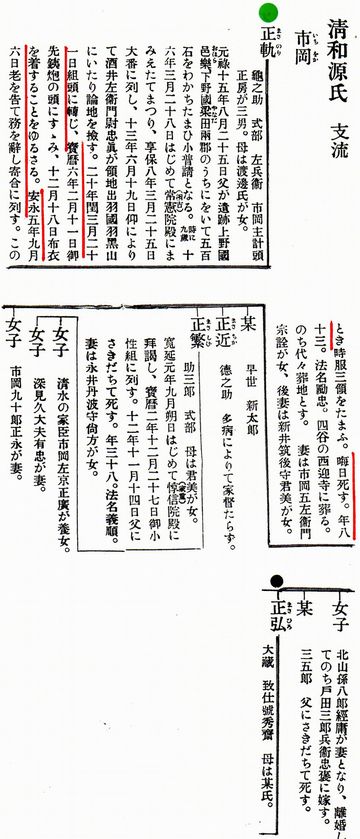 清和源氏 支流
市岡
いちをか
正軌
まさのり
龜之助 式部 左兵衞 市岡主計頭
正房が三男。母は渡邊氏が女。
元祿十五年八月二十五日父が遺跡上野國
邑樂下野國梁田兩郡のうちにをいて五百
石をわかちたまひ小普請となる。時に九歲 十
六年三月二十八日はじめて常憲院殿にま
みえたてまつり、享保八年三月二十五日
大番に列し、十三年六月十九日仰により
て酒井左衞門尉忠眞が領地出羽國羽黑山
にいたり論地を撿す。二十年閏三月二十
一日組頭に轉じ、寶曆六年二月十一日御
先銕炮の頭にすゝみ、十二月十八日布衣
を着することをゆるさる。安永五年九月
六日老を告て務を辭し寄合に列す。この
とき時服三領をたまふ。晦日死す。年八
十三。法名勵忠。四谷の西迎寺に葬る。
のち代々葬地とす。 妻は市岡五左衞門
宗詮が女、後妻は新井筑後守君美が女。
某
早世 新太郎
正近
まさちか
德之助 多病によりて家督たらず。
正繁
まさしげ
助三郎 式部 母は君美が女。
寬延元年九月朔日はじめて惇信院殿に
拜謁し、寶曆二年十二月二十七日御小
性組に列す。十二年十一月十四日父に
さきだちて死す。年三十八。法名義順。
妻は永井丹波守尙方が女。
女子
淸水の家臣市岡左京正廣が養女。
女子
深見久大夫有忠が妻。
女子
市岡九十郎正永が妻。
女子
北山孫八郎經庸が妻となり、離婚し
てのち戶田三郎兵衞忠褒に嫁す。
某
三五郎 父にさきだちて死す。
正弘
まさひろ
大藏 致仕號秀齋 母は某氏。